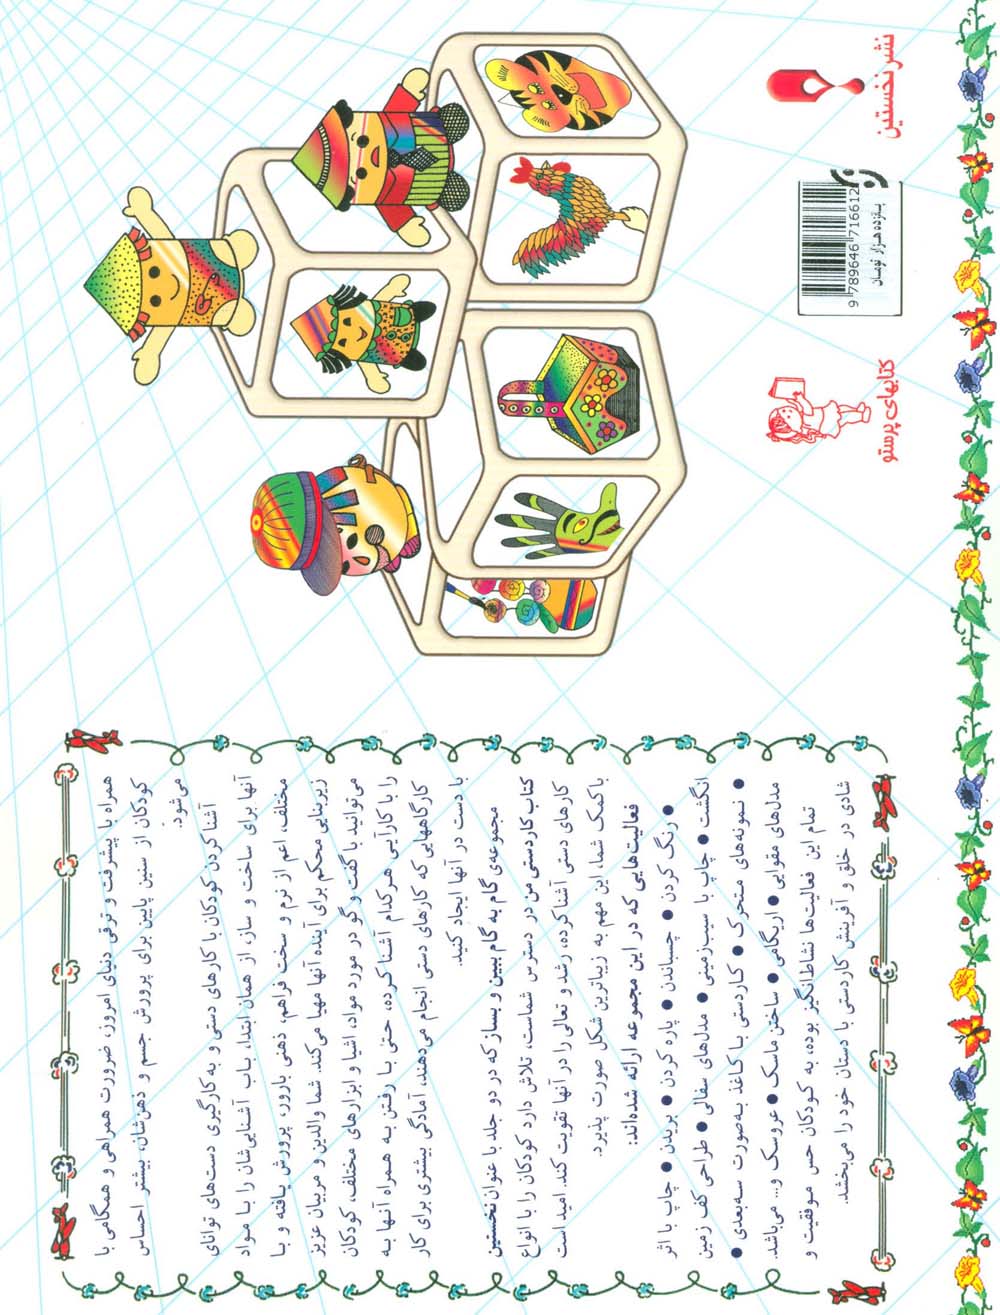 همراه با پیشرفت و ترقی دنیای امروز، ضرورت همراهی و همگامی با
کودکان از سنین پایین برای پرورش جسم و ذهن‌شان، بیشتر احساس
می‌شود.
آشنا کردن کودکان با کارهای دستی و به‌کارگیری دست‌های توانای
آنها برای ساخت و ساز، از همان ابتدا، باب آشنایی‌شان را با مواد
مختلف، اعم از نرم و سخت فراهم، ذهنی بارور، پرورش یافته و با
زیربنایی محکم برای آینده آنها مهیا می‌کند. شما والدین و مربیان عزیز
می‌توانید با گفت و گو در مورد مواد، اشیا و ابزارهای مختلف، کودکان
را با کارآیی هرکدام آشنا کرده، حتی با رفتن به همراه آنها به
کارگاههایی که کارهای دستی انجام می‌دهند، آمادگی بیشتری برای کار
با دست در آنها ایجاد کنید.
مجموعه‌ی گام به گام ببین و بساز که در دو جلد با عنوان نخستین
کتاب کاردستی من در دسترس شماست، تلاش دارد کودکان را با انواع
کارهای دستی آشنا کرده، رشد و تعالی را در آنها تقویت کند. امید است
با کمک شما، این مهم به زیباترین شکل صورت پذیرد.
فعالیت‌هایی که در این مجموعه ارائه شده‌اند:
● رنگ کردن ● چسباندن ● پاره کردن ● بریدن ● چاپ با اثر
انگشت ● چاپ با سیب‌زمینی ● مدل‌های سفالی ● طراحی کف زمین
● نمونه‌های متحرک ● کاردستی با کاغذ به‌صورت سه‌بعدی ●
مدل‌های مقوایی ● اریگامی ● ساختن ماسک ● عروسک و... می‌باشد.
تمام این فعالیت‌ها نشاط‌انگیز بوده، به کودکان حس موفقیت و
شادی در خلق و آفرینش کاردستی با دستان خود را می‌بخشد.
نشر نخستین
9 789646 716612
پانزده هزار تومان
کتابهای پرستو